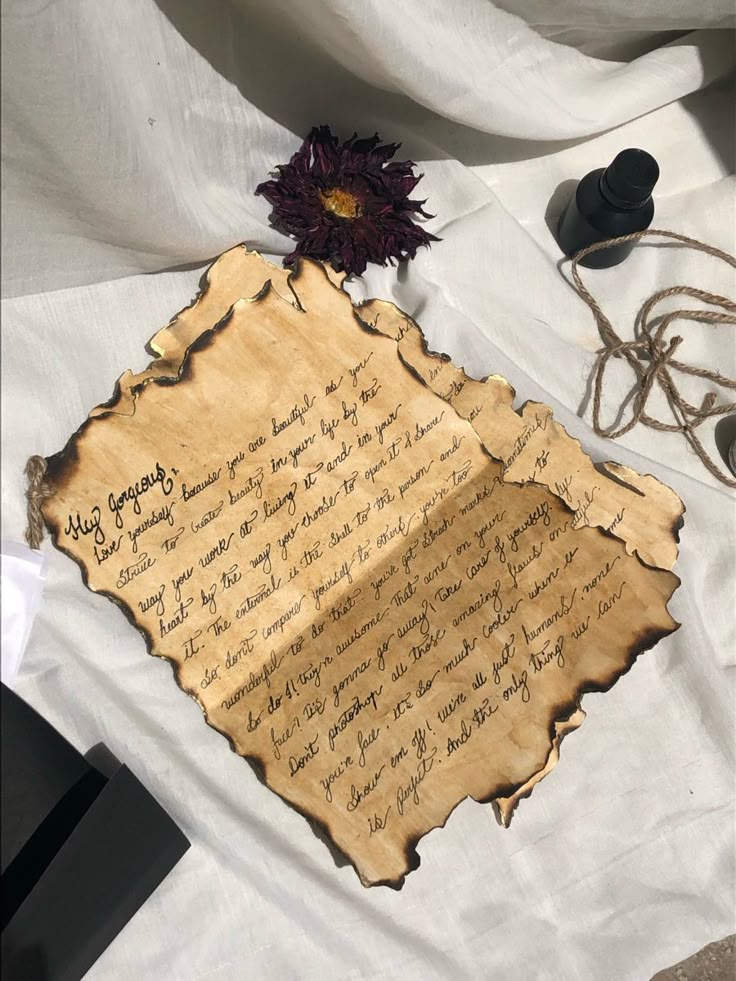 Hey gorgeous,
Love yourself because you are beautiful as you
Strive to create beauty in your life by the
way you work at living it and in your
heart by the way you choose to open it & share
it. The external is the shell to the person and
So don't compare yourself to others, you're too
wonderful to do that. you've got stretch marks?
So do I! they're awesome. That acne on your
face? It's gonna go away. Take care of yourself.
Don't photoshop all those amazing flaws on
you're face, it's so much cooler when u
show em off! We're all just humans, none
is perfect. And the only thing we can
you
you
sometimes
to
by
me